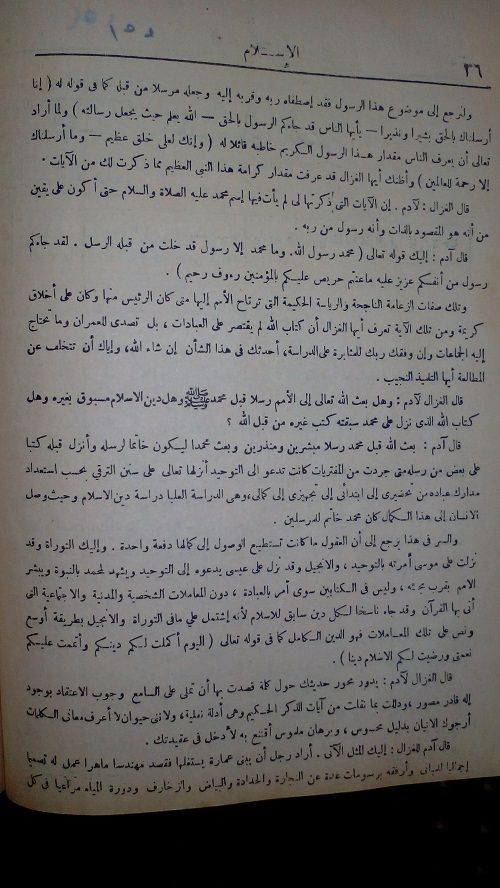 الإسلام
٣٦
ولنرجع إلى موضوع هذا الرسول فقد إصطفاه ربه وقربه إليه وجعله مرسلا من قبله كما فى قوله له ( إنا
أرسلناك بالحق بشيرا ونذيرا — يأيها الناس قد جاءكم الرسول بالحق — الله يعلم حيث يجعل رسالته ) ولما أراد
تعالى أن يعرف الناس مقدار هذا الرسول الكريم خاطبه قائلا له ( وإنك لعلى خلق عظيم — وما أرسلناك
إلا رحمة للعالمين ) وأظنك أيها الغزال قد عرفت مقدار كرامة هذا النبى العظيم مما ذكرت لك من الآيات .
قال الغزال : لآدم . إن الآيات التى ذكرتها لى لم يأت فيها إسم محمد عليه الصلاة والسلام حتى أكون على يقين
من أنه هو المقصود بالذات وأنه رسول من ربه .
قال آدم : إليك قوله تعالى ( محمد رسول الله . وما محمد إلا رسول قد خلت من قبله الرسل . لقد جاءكم
رسول من أنفسكم عزيز عليه ماعنتم حريص عليكم بالمؤمنين رءوف رحيم ) .
وتلك صفات الزعامة الناجحة والرياسة الحكيمة التى ترتاح الأمم إليها متى كان الرئيس منها وكان على أخلاق
كريمة ومن تلك الآية تعرف أيها الغزال أن كتاب الله لم يقتصر على العبادات ، بل تصدى للعمران وما تحتاج
إليه الجماعات وإن وفقك ربك للمثابرة على الدراسة، أحدثك فى هذا الشأن إن شاء الله، وإياك أن تتخلف عن
المطالعة أيها التلميذ النجيب .
قال الغزال لآدم : وهل بعث الله تعالى إلى الأمم رسلا قبل محمد ﷺ وهل دين الاسلام مسبوق بغيره وهل
كتاب الله الذى نزل على محمد سبقته كتب غيره من قبل الله ؟
قال آدم : بعث الله قبل محمد رسلا مبشرين ومنذرين وبعث محمدا ليكون خاتما لرسله وأنزل قبله كتبا
على بعض من رسله متى جردت من المفتريات كانت تدعو الى التوحيد أنزلها تعالى على سنن الترقى بحسب استعداد
مدارك عباده من تحضيرى إلى ابتدائى إلى تجهيزى إلى كمالى، وهى الدراسة العليا دراسة دين الاسلام وحيث وصل
الانسان إلى هذا الكمال كان محمد خاتم المرسلين .
والسر فى هذا يرجع إلى أن العقول ما كانت تستطيع الوصول إلى كمالها دفعة واحدة . وإليك التوراة وقد
نزلت على موسى أمرته بالتوحيد ، والانجيل وقد نزل على عيسى يدعوه إلى التوحيد ويشهد لمحمد بالنبوة ويبشر
الامم بقرب بعثته ، وليس فى الكتابين سوى أمر بالعبادة ، دون المعاملات الشخصية والمدنية والاجتماعية التى
أتى بها القرآن وقد جاء ناسخا لكل دين سابق للاسلام لأنه إشتمل على مافى التوراة والانجيل بطريقة أوسع
ونص على تلك المعاملات فهو الدين الكامل كما فى قوله تعالى ( اليوم أكملت لكم دينكم وأتممت عليكم
نعمتى ورضيت لكم الاسلام دينا ) .
قال الغزال لآدم : يدور محور حديثك حول كلمة قصدت بها أن تملى على السامع وجوب الاعتقاد بوجود
إله قادر مصور ، ودللت بما نقلت من آيات الذكر الحكيم وهى أدلة نقلية، ولاننى حيوان لا أعرف معانى الكلمات
أرجوك الاتيان بدليل محسوس ، وبرهان ملموس أقتنع به لأدخل فى عقيدتك .
قال آدم للغزال : إليك المثل الآتى . أراد رجل أن يبنى عمارة يستغلها فقصد مهندسا ماهرا عمل له تصميما
إجماليا للمبانى وأرفقه برسومات عدة عن النجارة والحدادة والبياض والزخارف ودورة المياه مراعيا فى كل